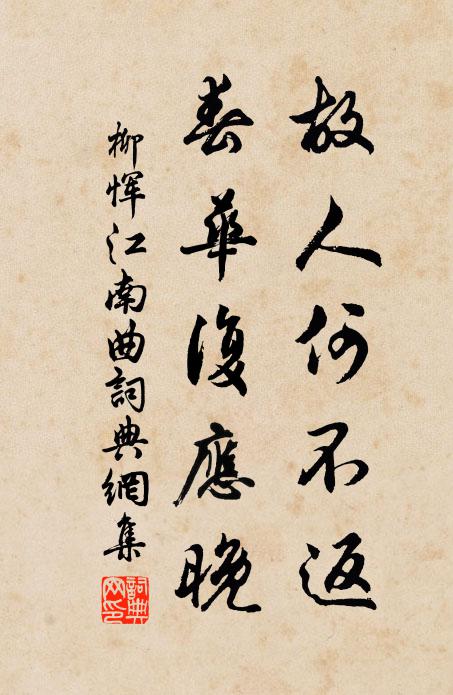 故人何不返
春華復應晚
柳惲江南曲詞典網集
詞典网印